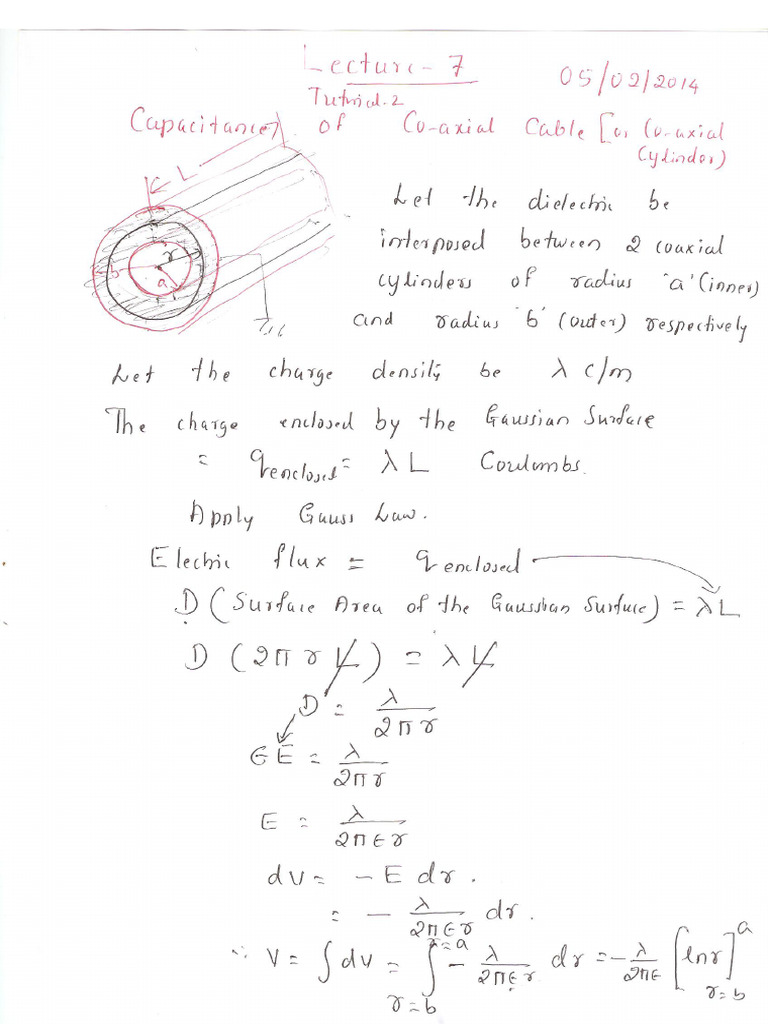 Lecture-7
05/02/2014
Tutorial.2
Capacitance of Co-axial Cable [or Co-axial
Cylinder)
L
r
a
b
Let the dielectric be
interposed between 2 coaxial
cylinders of radius 'a' (inner)
and radius 'b' (outer) respectively
Let the charge density be λ c/m
The charge enclosed by the Gaussian Surface
= qenclosed = λ L Coulombs.
Apply Gauss Law.
Electric flux = qenclosed
D (Surface Area of the Gaussian Surface) = λL
D (2π r L) = λ L
D = λ / 2π r
ϵE = λ / 2π r
E = λ / 2π ϵ r
dV = - E dr.
= - λ / 2π ϵ r dr.
∵ V = ∫ dV = ∫_{r=b}^{r=a} - λ / 2π ϵ r dr = - λ / 2π ϵ [ln r]_{r=b}^{a}